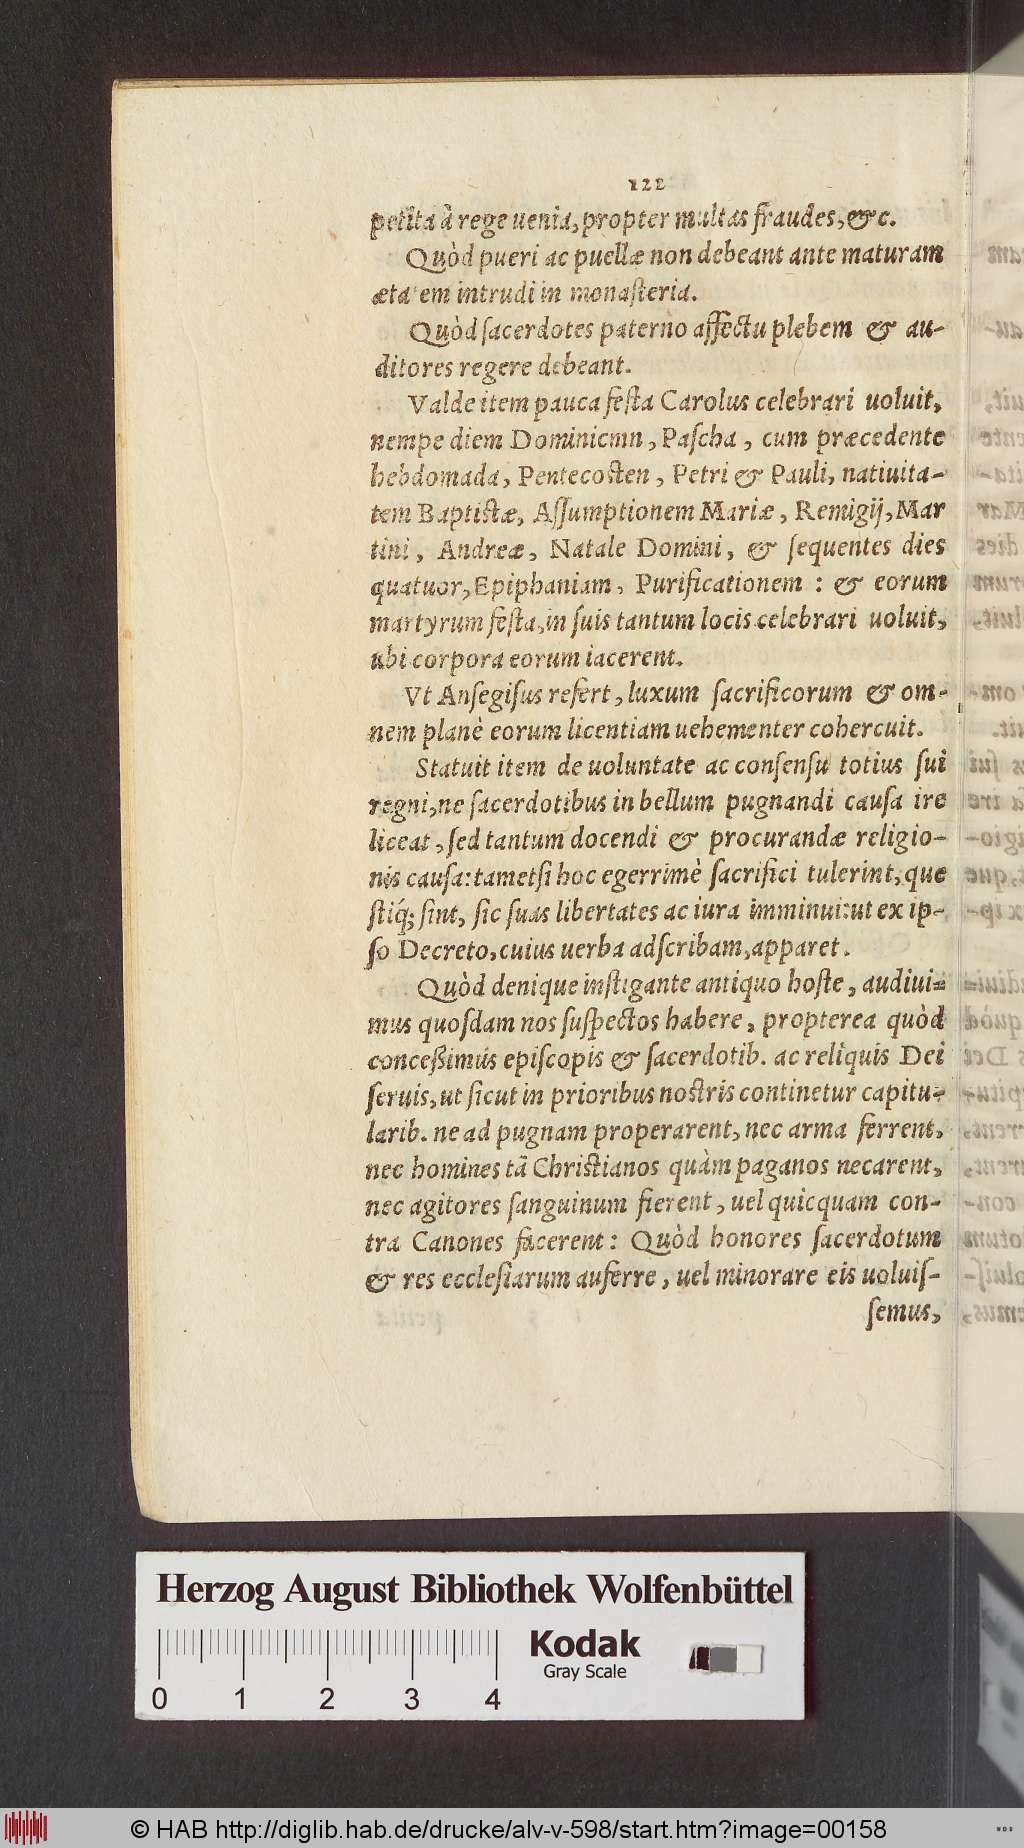 122
petita à rege uenia, propter multas fraudes, &c.
Quòd pueri ac puellæ non debeant ante maturam
æta em intrudi in monaſteria.
Quòd ſacerdotes paterno affectu plebem & au-
ditores regere debeant.
Valde item pauca feſta Carolus celebrari uoluit,
nempe diem Dominicum, Paſcha, cum præcedente
hebdomada, Pentecoſten, Petri & Pauli, natiuita-
tem Baptiſtæ, Aſſumptionem Mariæ, Remigij, Mar
tini, Andreæ, Natale Domini, & ſequentes dies
quatuor, Epiphaniam, Purificationem : & eorum
martyrum feſta, in ſuis tantum locis celebrari uoluit,
ubi corpora eorum iacerent.
Vt Anſegiſus refert, luxum ſacrificorum & om-
nem planè eorum licentiam uehementer cohercuit.
Statuit item de uoluntate ac conſenſu totius ſui
regni, ne ſacerdotibus in bellum pugnandi cauſa ire
liceat, ſed tantum docendi & procurandæ religio-
nis cauſa: tametſi hoc egerrimè ſacrifici tulerint, que
ſtiq́; ſint, ſic ſuas libertates ac iura imminui: ut ex ip-
ſo Decreto, cuius uerba adſcribam, apparet.
Quòd denique inſtigante antiquo hoſte, audiui-
mus quoſdam nos ſuſpectos habere, propterea quòd
conceßimus epiſcopis & ſacerdotib. ac reliquis Dei
ſeruis, ut ſicut in prioribus noſtris continetur capitu-
larib. ne ad pugnam properarent, nec arma ferrent,
nec homines tā Chriſtianos quàm paganos necarent,
nec agitores ſanguinum fierent, uel quicquam con-
tra Canones facerent: Quòd honores ſacerdotum
& res eccleſiarum auferre, uel minorare eis uoluiſ-
ſemus,
Herzog August Bibliothek Wolfenbüttel
Kodak
Gray Scale
0 1 2 3 4
© HAB http://diglib.hab.de/drucke/alv-v-598/start.htm?image=00158